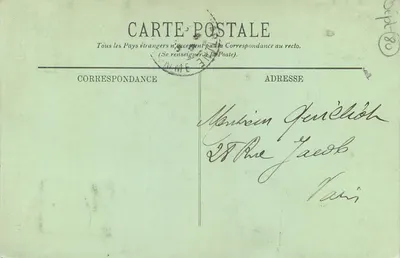 CARTE POSTALE
Tous les Pays étrangers n'acceptent pas la Correspondance au recto.
(Se renseigner à la Poste).
CORRESPONDANCE
ADRESSE
Monsieur
28 Rue Jacob
Paris